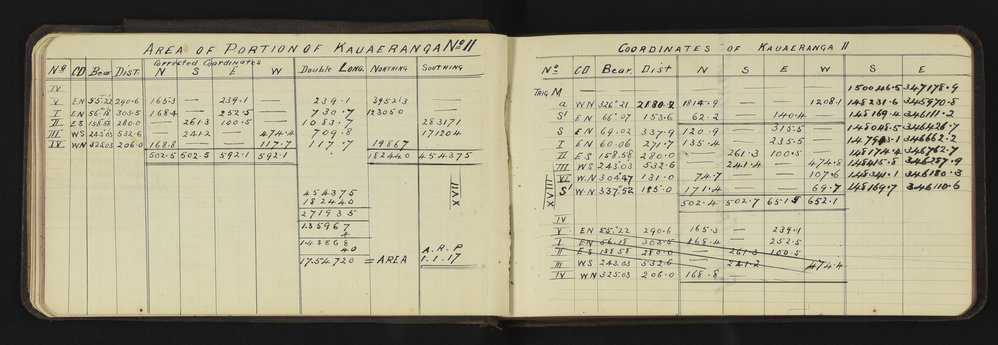 AREA OF PORTION OF KAUAERANGA No 11
Corrected Coordinates
No CD Bear. Dist. N S E W Double Long. Northing Southing
IV
V EN 55°22 290.6 165.3 — 239.1 — 239.1 39523 —
I EN 56.18 303.5 168.4 — 252.5 — 730.7 123050 —
II ES 158.58 280.0 — 261.3 100.5 — 1083.7 283171
III WS 243.03 532.6 — 241.2 — 474.4 709.8 171204
IV WN 325.03 206.0 168.8 — — 117.7 117.7 19867
502.5 502.5 592.1 592.1 182440 454375
454375
182440
271935
135967
4
143868
40
1754720 = AREA
A. R. P
1. 1. 17
XVII
COORDINATES OF KAUAERANGA 11
No CD Bear. Dist N S E W S E
TRIG M 150046.5 347178.9
a WN 326°21 2180.2 1814.9 — — 1208.1 148231.6 345970.5
S' EN 66°07 153.6 62.2 — 140.4 — 148169.4 346111.2
S EN 69.02 337.9 120.9 — 315.5 — 148048.5 346426.7
I EN 60.06 271.7 135.4 — 235.5 — 346662.2
II ES 158.58 280.0 — 261.3 100.5 — 148174.4 346762.7
III WS 243.03 532.6 — 241.4 — 474.8 148415.8 346287.9
VI WN 304°47 131.0 74.7 — — 107.6 148341.1 346180.3
S' W.N 337°52 185.0 171.4 — — 69.7 148169.7 346110.6
502.4 502.7 652.1
XVIII
IV
V EN 55°22 290.6 165.3 — 239.1
I EN 56.18 303.5 168.4 — 252.5
II ES 158.58 280.0 — 261.3 100.5
III WS 243.03 532.6 — 241.2 474.4
IV W.N 325.03 206.0 168.8 —